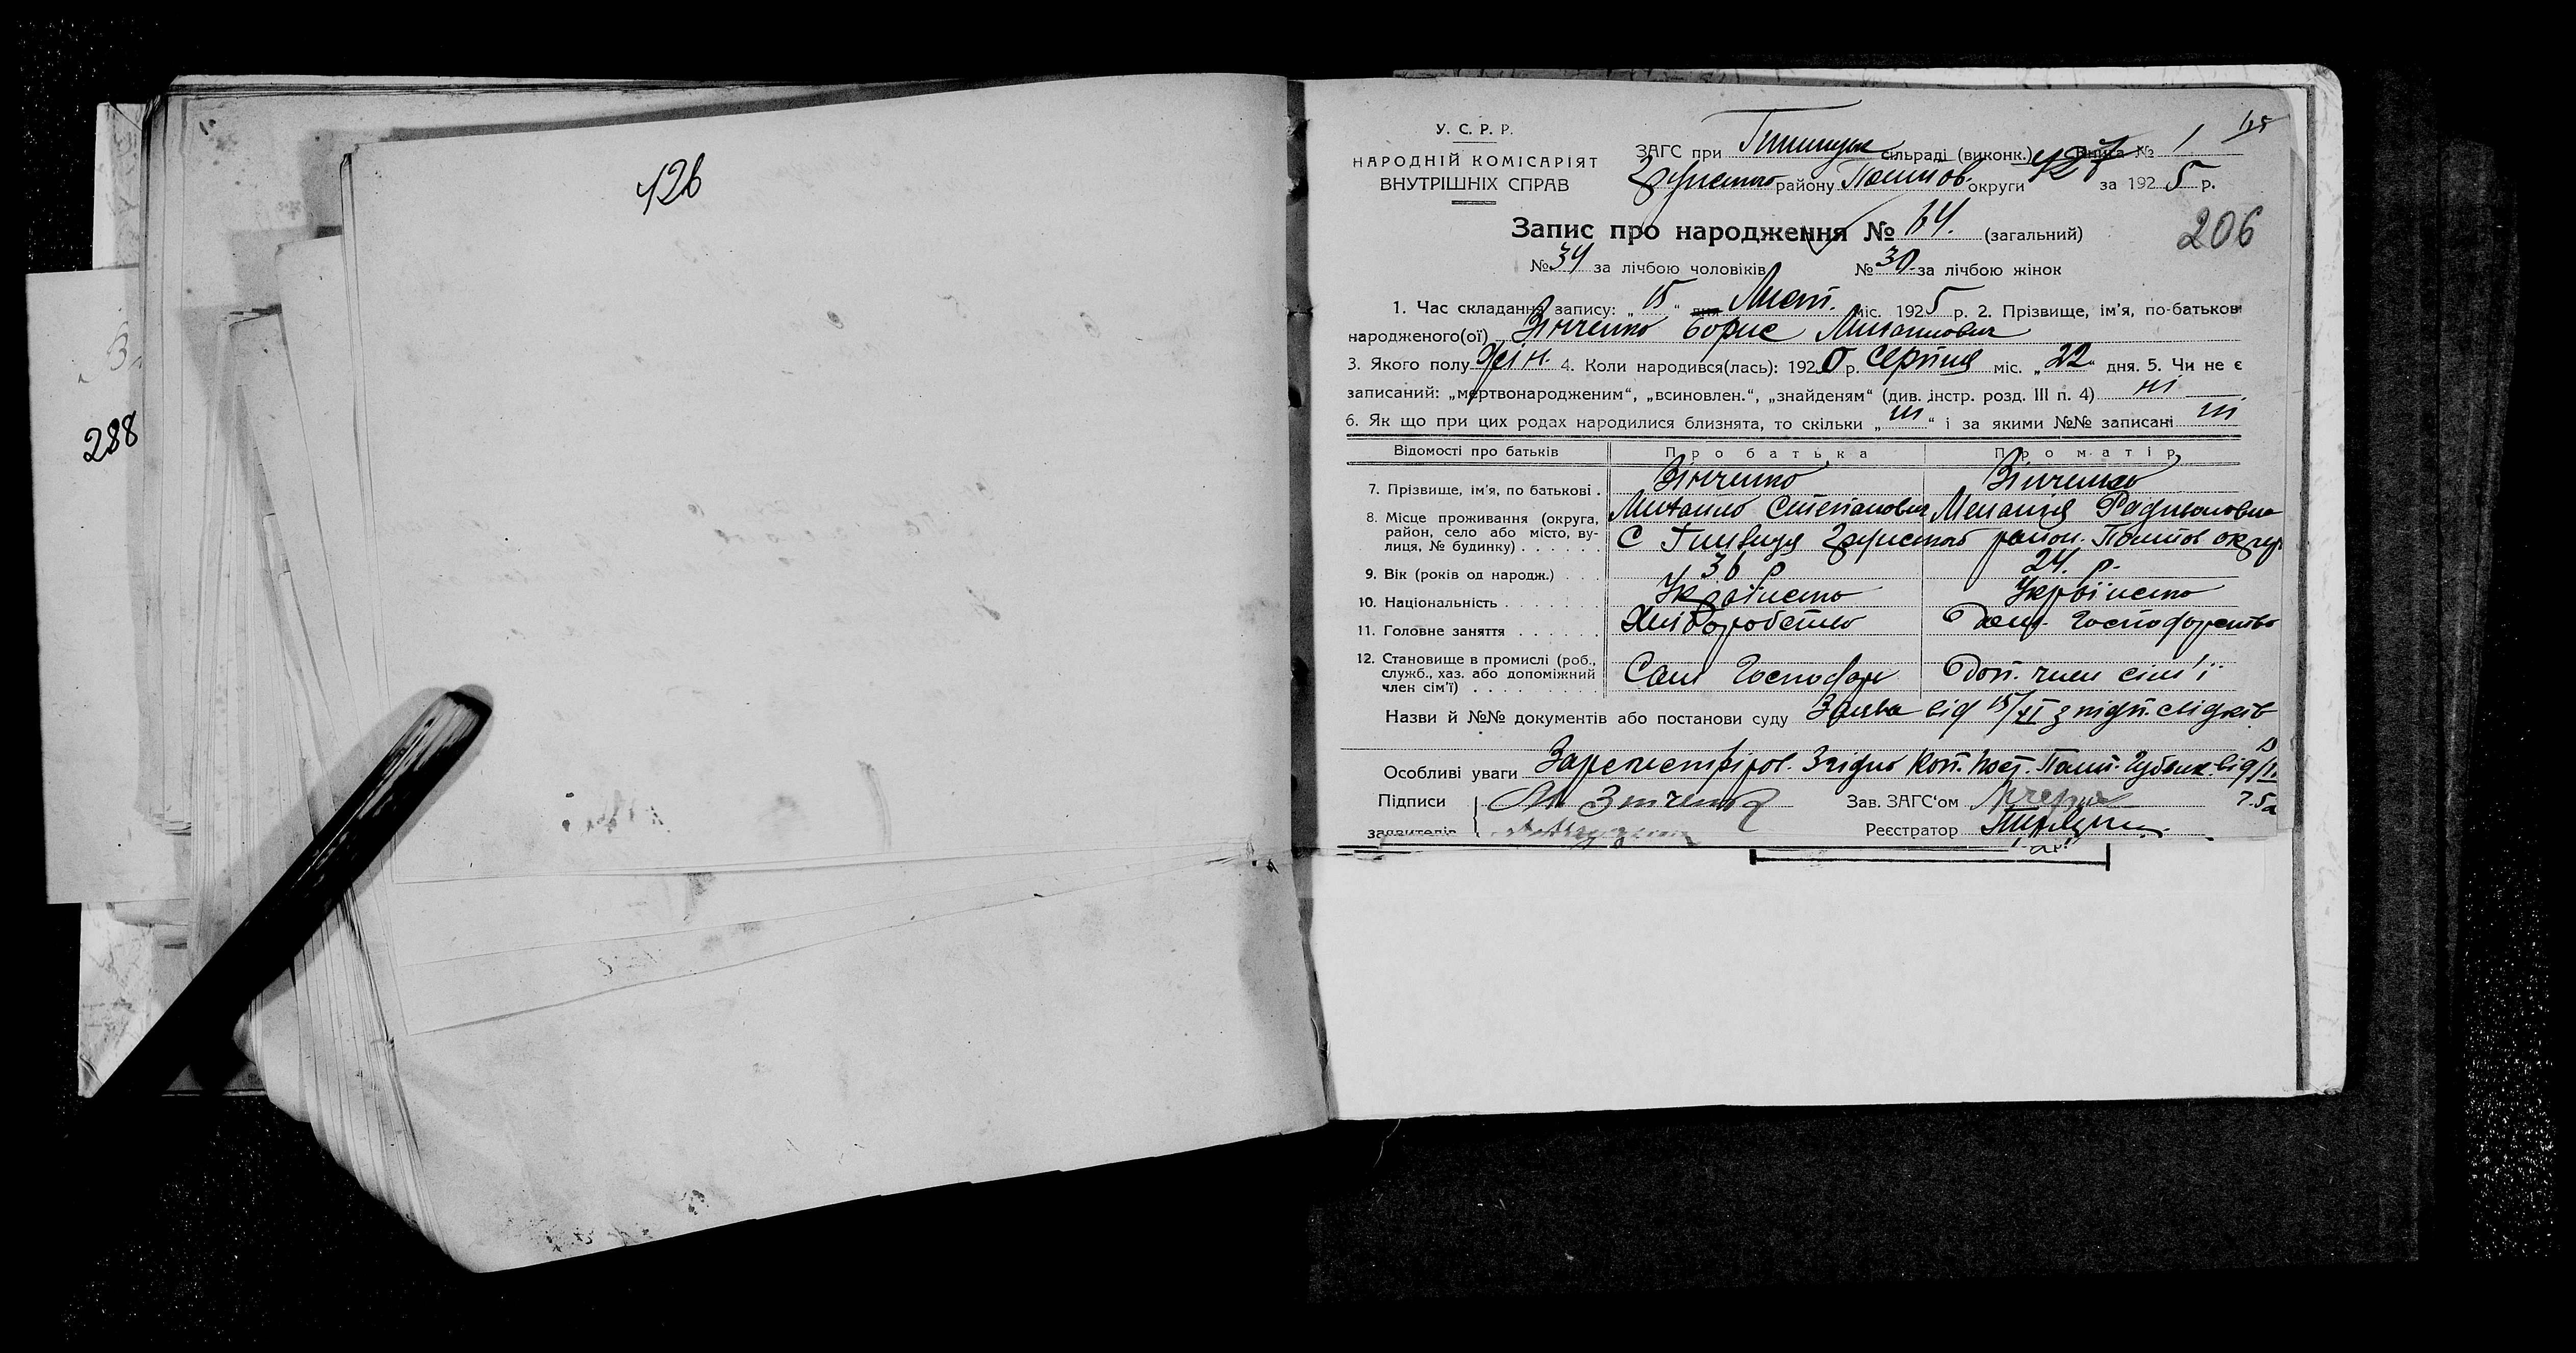 426
288
У. С. Р. Р.
НАРОДНІЙ КОМІСАРІЯТ
ВНУТРІШНІХ СПРАВ
ЗАГС при сільраді (виконк.) Книга № 1
району Полтов. округи за 1925 р.
427
206
Запис про народження № 64. (загальний)
№ 34 за лічбою чоловіків № 30 за лічбою жінок
1. Час складання запису: „15“ дня Лист. міс. 1925 р. 2. Прізвище, ім’я, по-батькові
народженого(ої) Зінченко Борис Михайлович
3. Якого полу 4. Коли народився(лась): 1920 р. серпня міс. „22“ дня. 5. Чи не є
записаний: „мертвонародженим“, „всиновлен.“, „знайденям“ (див. інстр. розд. III п. 4) ні
6. Як що при цих родах народилися близнята, то скільки „ні“ і за якими №№ записані ні
Відомості про батьків Про батька Про матір
7. Прізвище, ім’я, по батькові . Зінченко Зінченко
Михайло Степанович Меланія Родионовна
8. Місце проживання (округа,
район, село або місто, ву-
лиця, № будинку) . . . . . . С район. Полтов округи
9. Вік (років од народж.) . . . 36 р 24. р.
10. Національність . . . . . . .
11. Головне заняття . . . . . . Хліборобство Дом. Господарство
12. Становище в промислі (роб.,
служб., хаз. або допоміжний
член сім’ї) . . . . . . . . . Сам Господар Доп. член сім’ї
Назви й №№ документів або постанови суду Заява від 15/XI з підп. свідків
Особливі уваги Зареєстріров. Згідно Пост. Полт. від
Підписи М Зінченко Зав. ЗАГС‘ом
заявителів Реєстратор